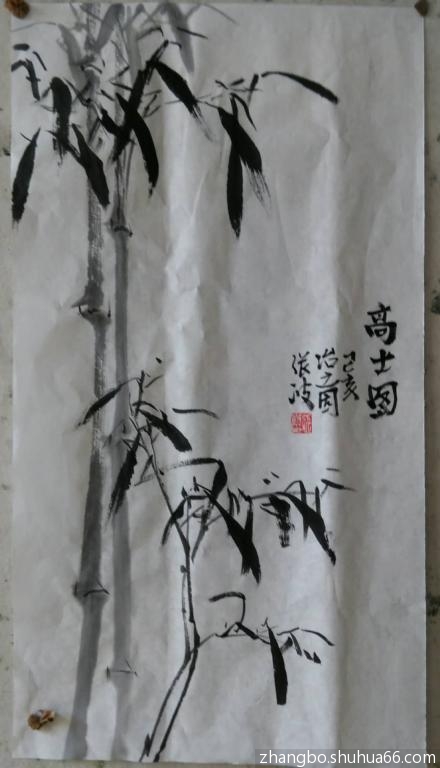 高士图
己亥
冶之图
张波
zhangbo.shuhua66.com